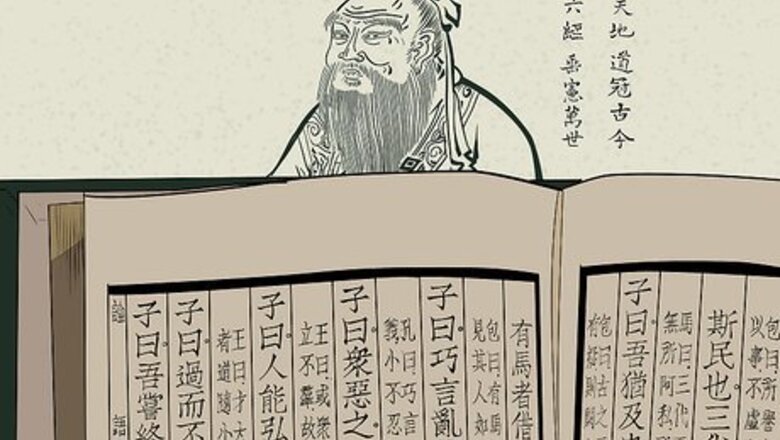 天地 道冠古今
六經 垂憲萬世
包曰所譽
以事不虛
斯民也三
馬曰三代
無所阿私
子曰吾猶及
包曰古之
有疑則闕
有馬者借
包曰有馬
見其人
子曰巧言亂
孔曰巧言
義小不忍
子曰衆惡之
王曰或衆
立不羣故
子曰人能弘
王曰才大
者道隨小
子曰過而不
子曰吾嘗終
論語